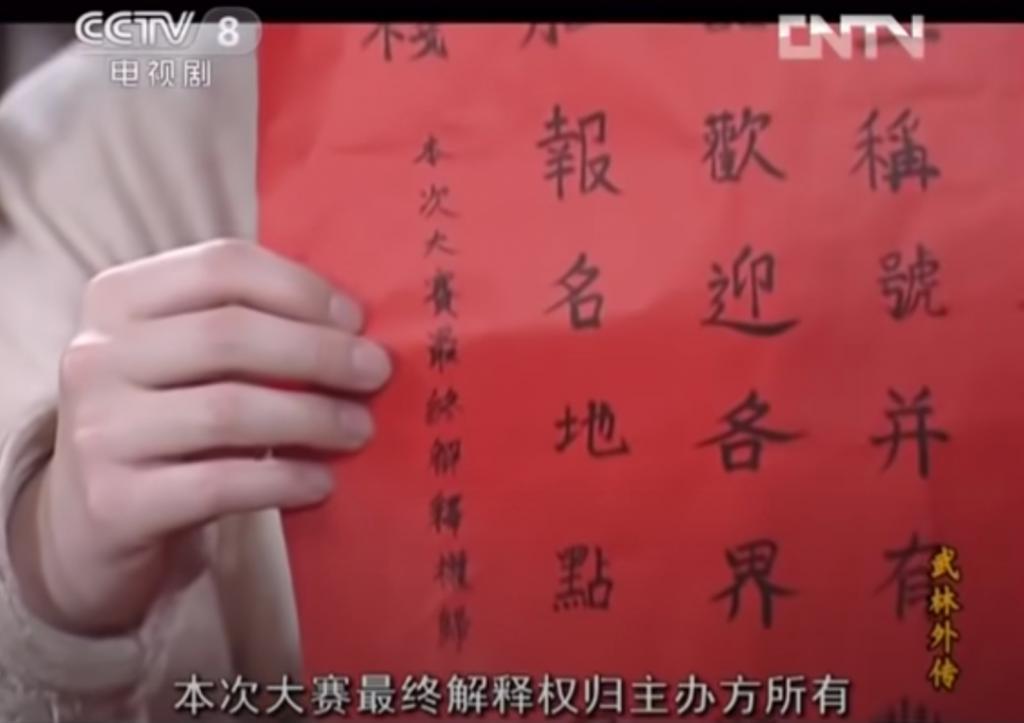 CCTV 8
电视剧
CNTV
稱號并有
歡迎各界
報名地點
棧
本次大賽最終解釋權歸
武林外传
本次大赛最终解释权归主办方所有